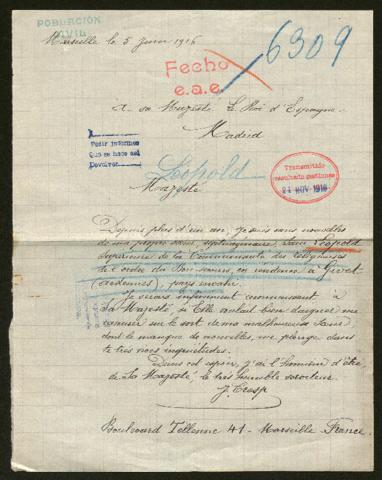 POBLACIÓN
CIVIL
Marseille le 5 Juin 1916
6309
Fecho
e.a.e.
A sa Majesté le Roi d'Espagne
Madrid
Pedir informes
Que se hace así
Devolver
Léopold
Transmitido
resultado gestiones
21 NOV. 1916
Majesté
Depuis plus d'un an, je suis sans nouvelles
de ma propre sœur, septuagénaire, Sœur Léopold
Supérieure de la Communauté des religieuses
de l'ordre du Bon secours, en résidence à Givet
(Ardennes), pays envahi.
Je serais infiniment reconnaissant à
Sa Majesté, si Elle voulait bien daigner me
renseigner sur le sort de ma malheureuse Sœur
dont le manque de nouvelles, me plonge dans
de très vives inquiétudes.
Dans cet espoir, j'ai l'honneur d'être,
de Sa Majesté, le très humble serviteur
J. Cresp
Boulevard Tellenne 41 - Marseille. France.